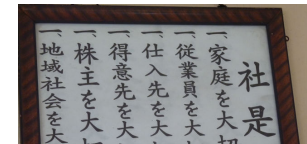 社是
一、家庭を大切
一、従業員を大
一、仕入先を大
一、得意先を大
一、株主を大
一、地域社会を大